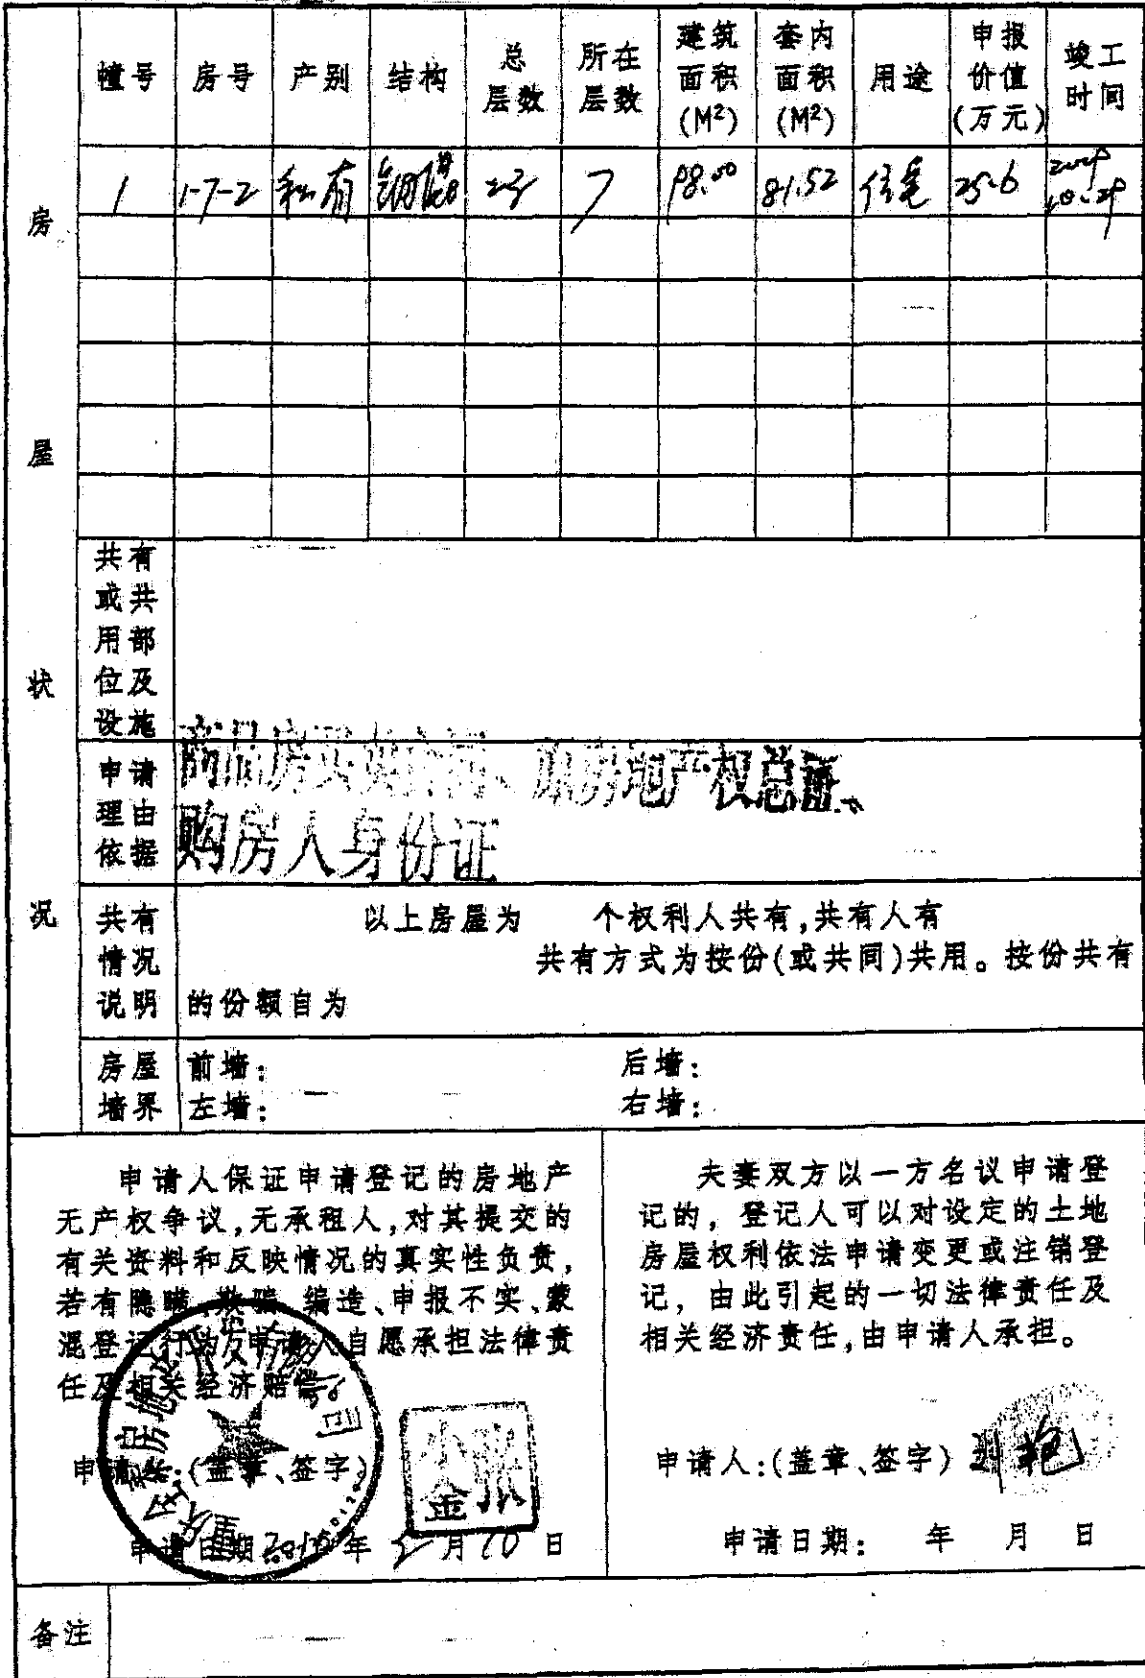 幢号 房号 产别 结构 总层数 所在层数 建筑面积(M²) 套内面积(M²) 用途 申报价值(万元) 竣工时间
1 1-7-2 私有 7 98.00 81.52 住宅 25.6
房屋状况
共有或共用部位及设施
申请理由依据 商品房买卖合同、原房地产权总证、
购房人身份证
共有情况说明 以上房屋为 个权利人共有,共有人有
共有方式为按份(或共同)共用。按份共有
的份额自为
房屋墙界 前墙: 后墙:
左墙: 右墙:
申请人保证申请登记的房地产
无产权争议,无承租人,对其提交的
有关资料和反映情况的真实性负责,
若有隐瞒、欺骗、编造、申报不实、蒙
混登记行为,申请人自愿承担法律责
任及相关经济赔偿。
申请人:(盖章、签字)
申请日期 2010年 2月10日
夫妻双方以一方名议申请登
记的, 登记人可以对设定的土地
房屋权利依法申请变更或注销登
记, 由此引起的一切法律责任及
相关经济责任,由申请人承担。
申请人:(盖章、签字)
申请日期: 年 月 日
备注